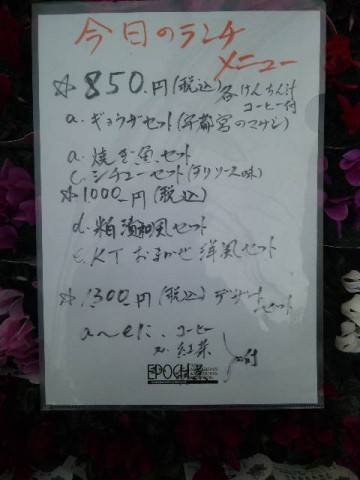 今日のランチ
メニュー
☆850円(税込)各けんちん汁
コーヒー付
a.ギョウザセット(宇都宮のマサシ)
a.焼き魚セット
c.シチューセット(デリソース味)
☆1000円(税込)
d.粕漬和風セット
e.KTおまかせ洋風セット
☆1300円(税込)デザート
セット
a〜eに、コーヒー
又.紅茶
付
EPOCH